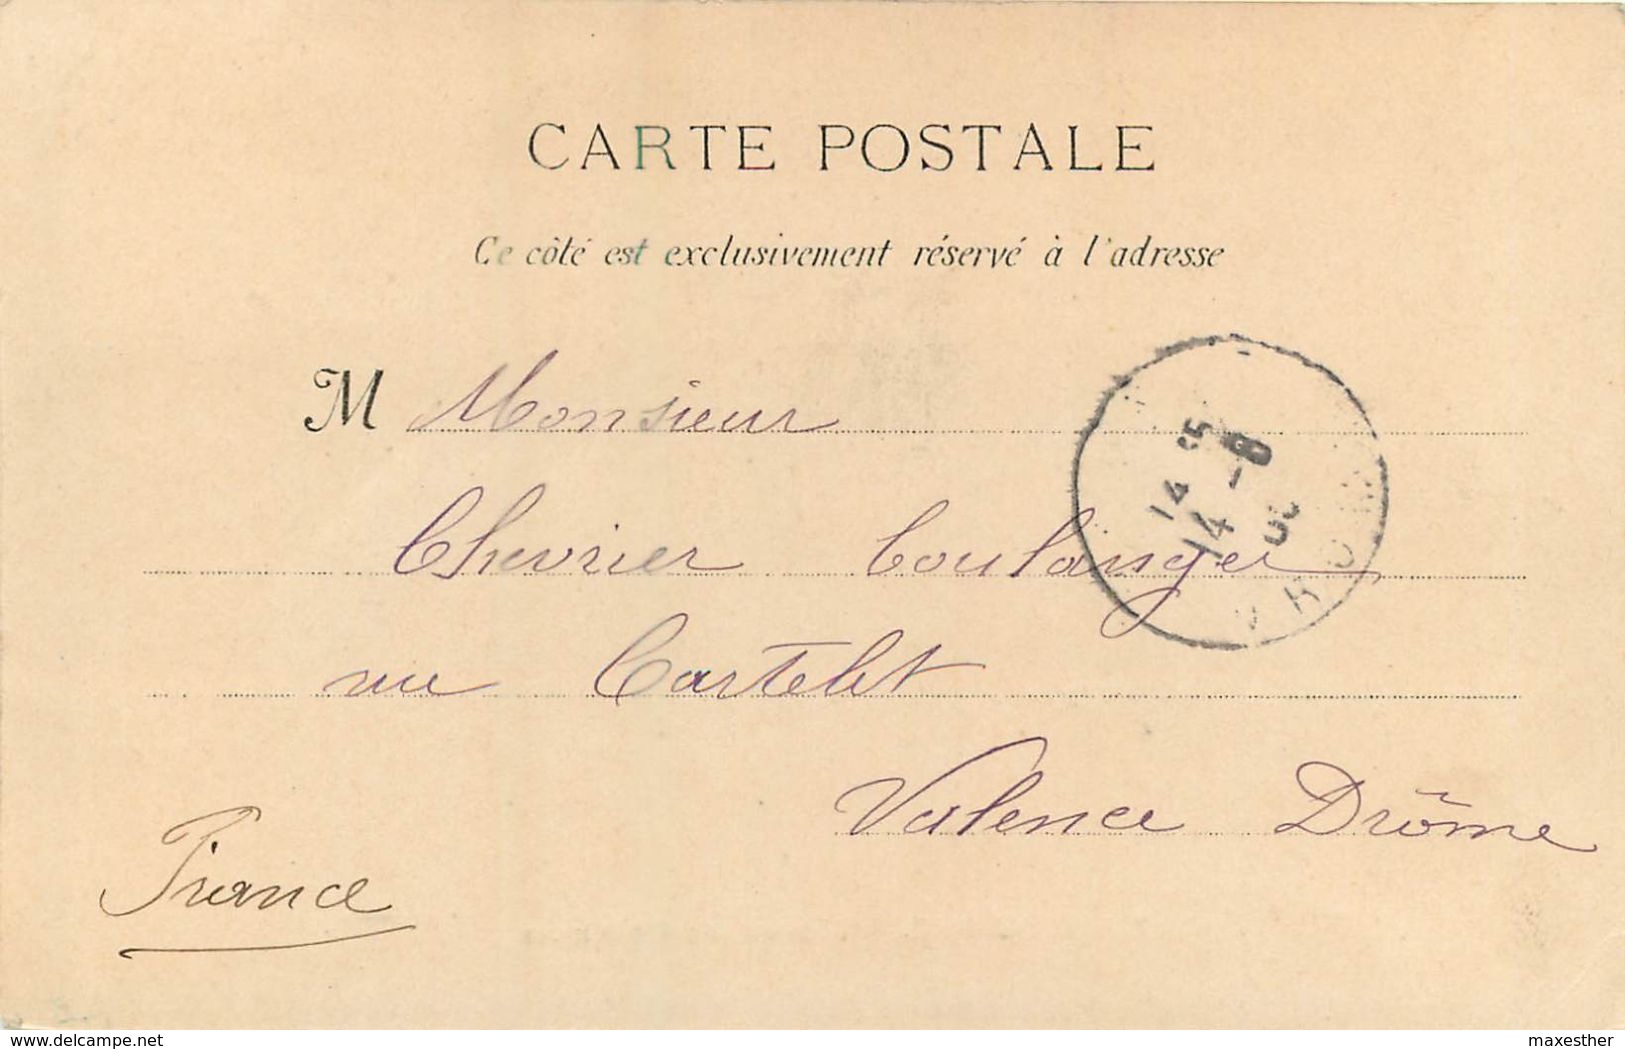 CARTE POSTALE
Ce côté est exclusivement réservé à l'adresse
M Monsieur
Chevrier boulanger
rue Cartelet
Valence Drôme
France
14 5
14 -8
delcampe.net
maxesther